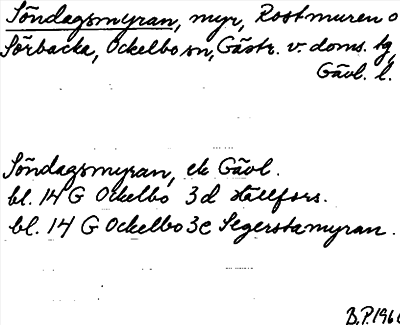 Söndagsmyran, myr, Rostmuren o
Sörbacka, Ockelbo sn, Gästr. v. doms. tg,
Gävl. l.
Söndagsmyran, ek Gävl.
bl. 14 G Ockelbo 3d Hällfors.
bl. 14 G Ockelbo 3e Segerstamyran.
B.P. 196